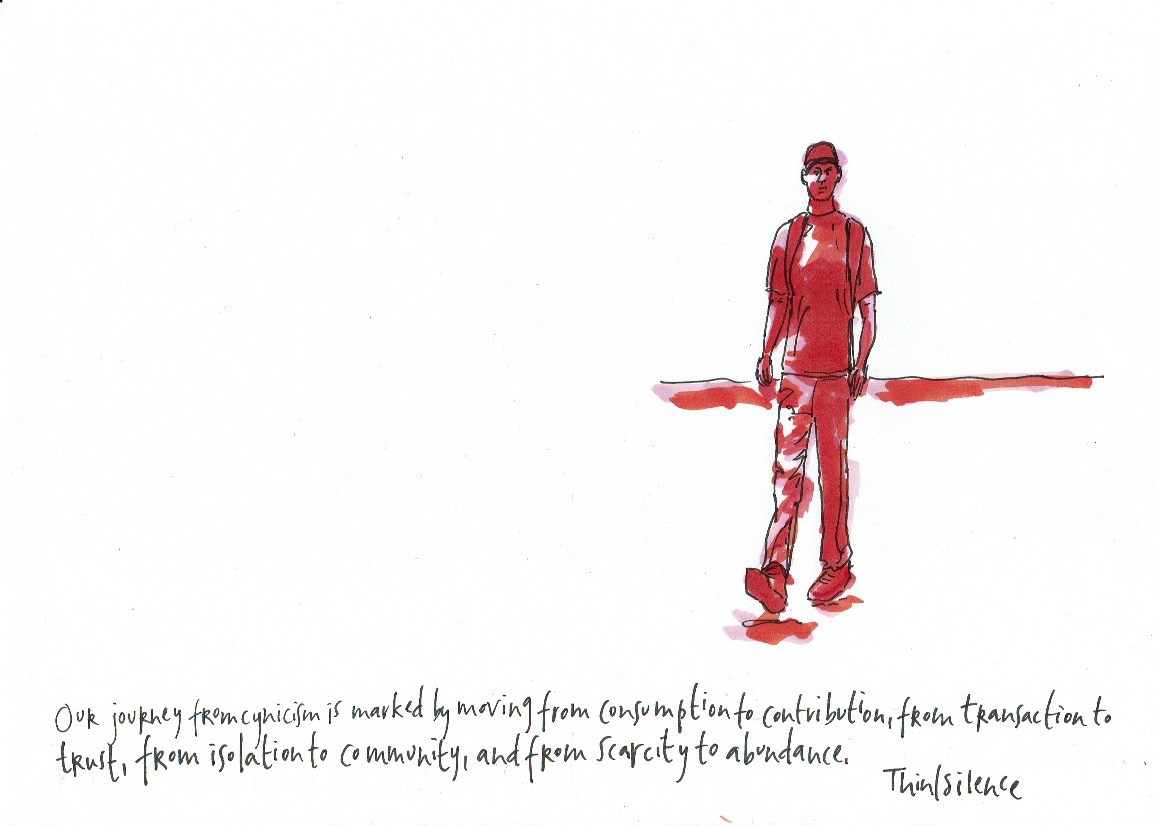 Our journey from cynicism is marked by moving from consumption to contribution, from transaction to
trust, from isolation to community, and from scarcity to abundance.
Thin/silence